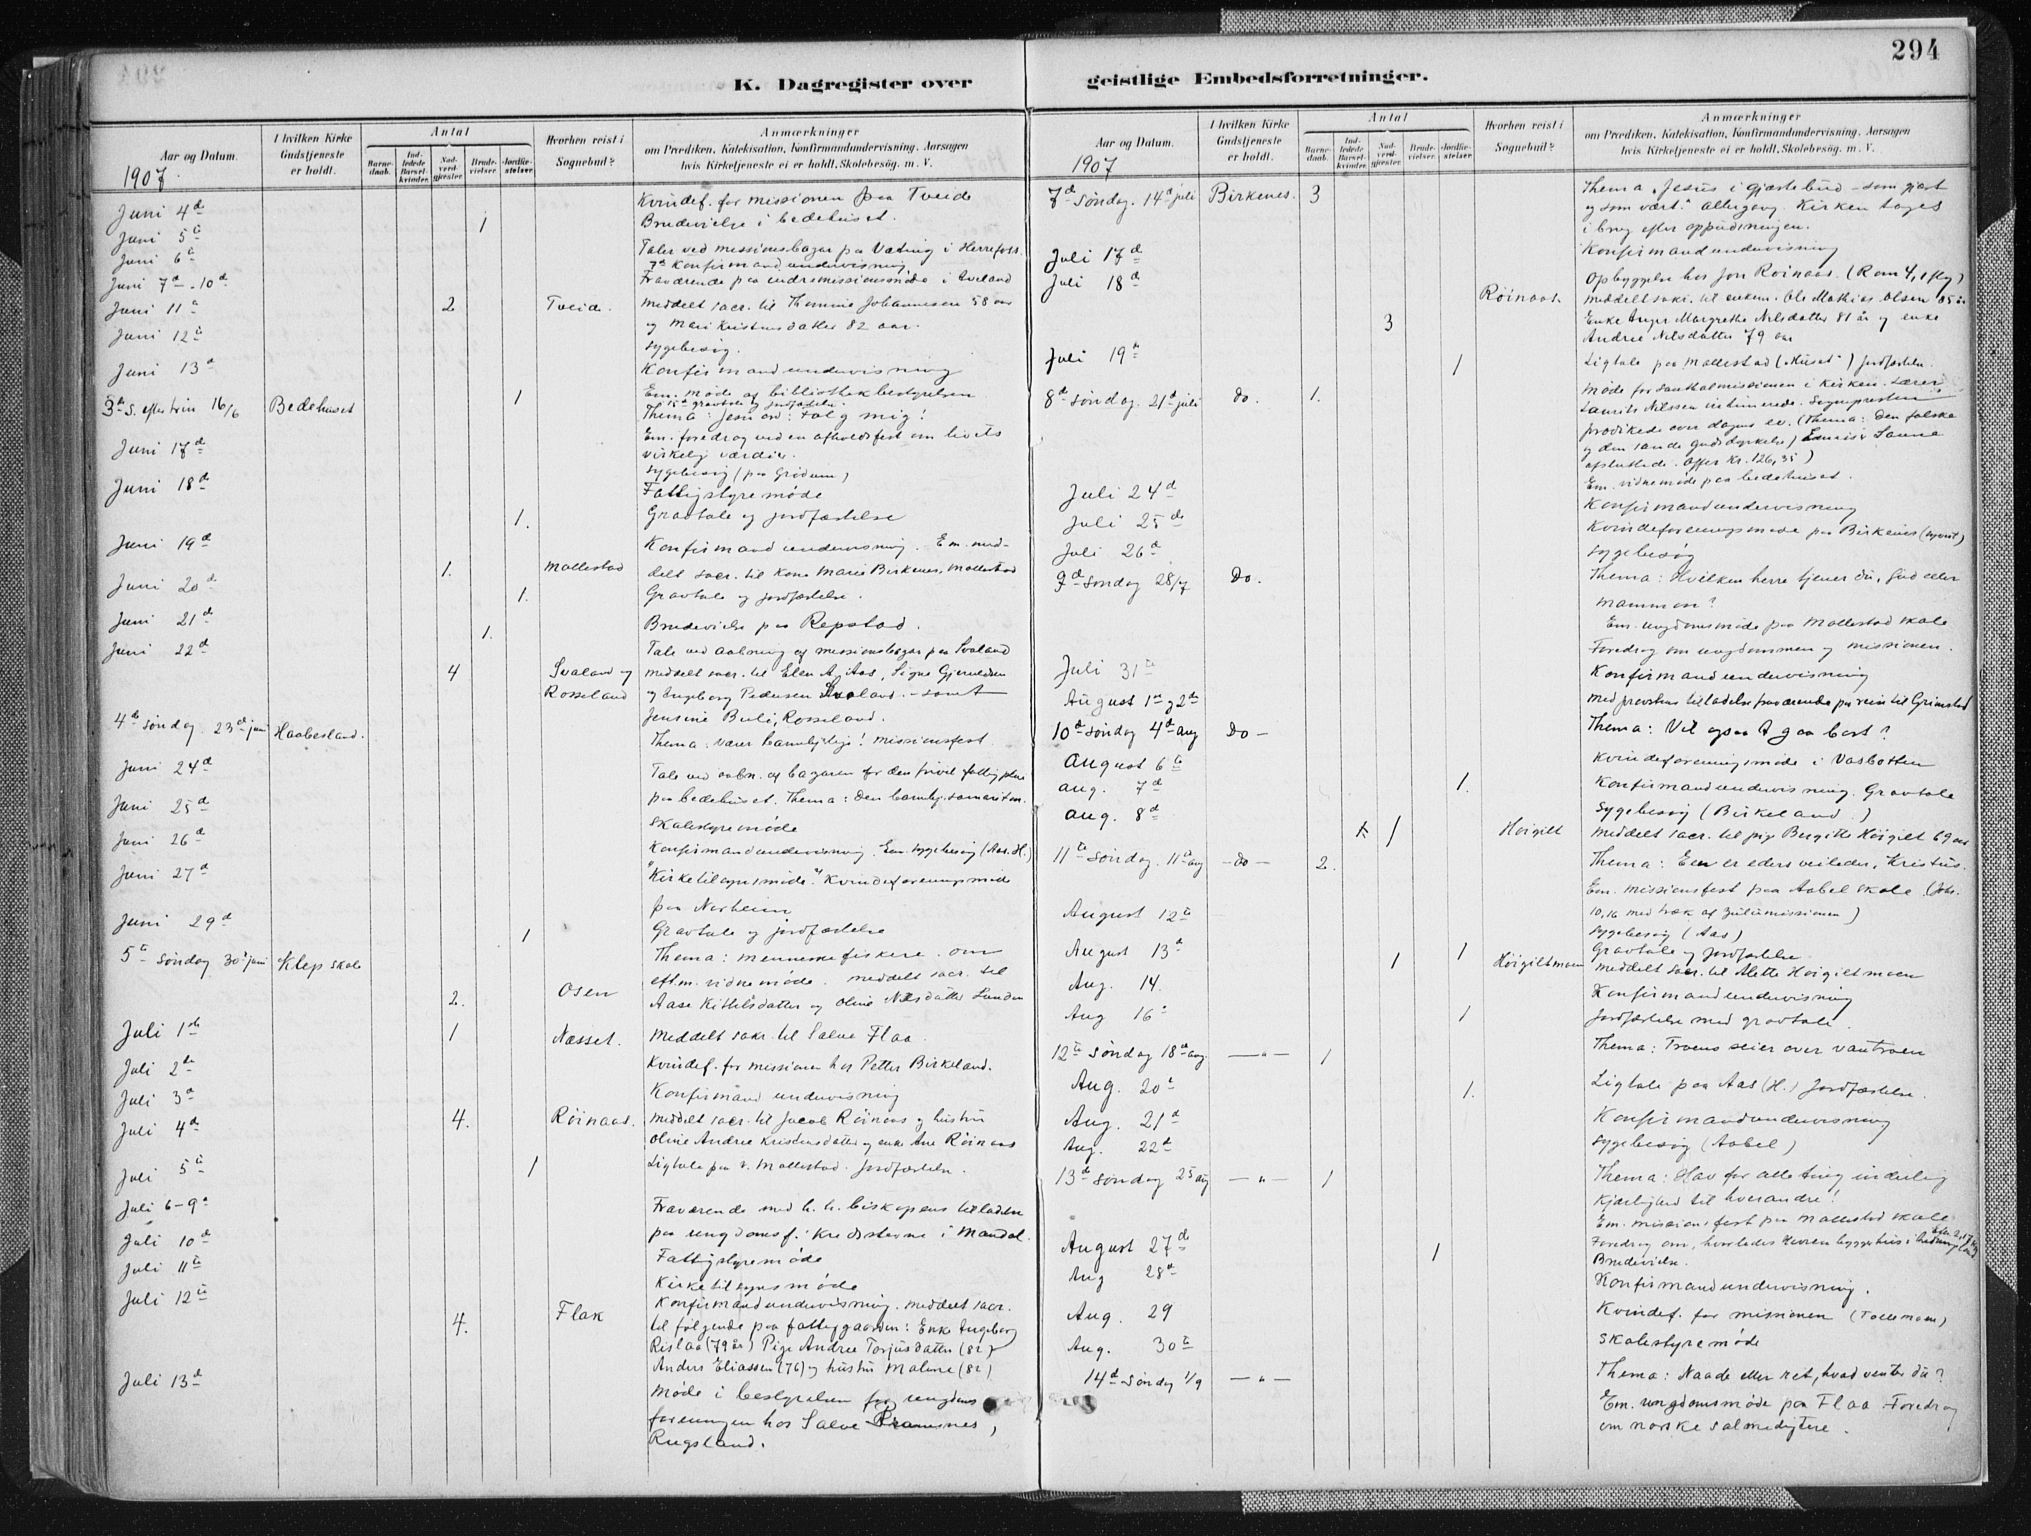 294
K. Dagregister over
geistlige Embedsforretninger.
Aar og Datum.
I hvilken Kirke
Gudstjeneste
er holdt.
Antal
Barne-
daab.
Ind-
ledede
Barsel-
kvinder.
Nad-
verd-
gjæster.
Brude-
vielser.
Jordfæ-
stelser.
Hvorhen reist i
Sognebud?
Anmærkninger
om Prædiken, Katekisation, Konfirmandundervisning, Aarsagen
hvis Kirketjeneste ei er holdt, Skolebesøg. m. V.
1907.
Juni 4de Kvindef. for missionen paa Tveide
1 Brudevielse i bedehuset.
Juni 5te
Juni 6te Taler ved missionsbazar paa i Herrefoss
7de Konfirmandundervisning
Juni 7de-10de Fraværende paa indremissionsmøde i Iveland
Juni 11te 2 Tveide. Meddelt sacr. til Johannesen 58 aar
og Mari Kristensdatter 82 aar.
Juni 12te Sygebesøg.
Juni 13de Konfirmandundervisning
Em. møde af bibliothekbestyrelsen
3die S. efter trin 16/6 Bedehuset 1 15de gravtale og jordfæstelse.
Thema: Jesu ord: Følg mig!
Em. foredrag ved en afholdsfest om livets
Juni 17de virkelig værdier.
Sygebesøg (paa)
Juni 18de Fattigstyremøde
1. Gravtale og jordfæstelse
Juni 19de Konfirmandundervisning. Em. med-
1. Mollestad delt sacr. til Kone Marie Birkenes, Mollestad
Juni 20de 1. Gravtale og jordfæstelse.
Juni 21de 1. Brudevielse paa Repstad.
Juni 22de Tale ved aabning af missionsbazar paa Svaland
4 Svaland og Meddelt sacr. til Elen Aas, Signe Gjeruldsen
Rosseland og Ingeborg Pedersen Svaland – samt
Jensine Buli, Rosseland.
4de søndag 23de juni Haabesland. Thema: Værer barmhjertige! Missionsfest.
Juni 24de Tale ved aabn. af bazaren for den privat fattigpleie
paa bedehuset. Thema: Den barmhj. samaritan.
Juni 25de Skolestyremøde
Juni 26de Konfirmandundervisning. Em. Sygebesøg (Aas. H.)
Juni 27de "Kirketilsynsmøde." Kvindeforeningsmøde
paa Nerheim
Juni 29de 1 Gravtale og jordfæstelse
5te Søndag 30te juni Klep skole Thema: Menneskefiskere. Om
efterm. vidnemøde. Meddelt sacr. til
2. Osen Aase Kittelsdatter og Oline Nilsdatter Lunden
Juli 1ste 1 Næsset. Meddelt sakr. til Salve Flaa.
Juli 2de Kvindef. for missionen hos Petter Birkeland.
Juli 3de Konfirmandundervisning
Juli 4de 4. Røinaas. Meddelt sacr. til Jacob Røinaas og hustru
Oline Andrea Kristensdatter og enke Ane Røinaas
Juli 5te 1 Ligtale paa v. Mollestad. Jordfæstelse.
Juli 6-9de Fraværende med h. h. biskopens tilladelse
paa ungdomsf. kredsstevne i Mandal.
Juli 10de Fattigstyremøde
Juli 11te Kirketilsynsmøde
Juli 12te Konfirmandundervisning. Meddelt sacr.
4. Flak til følgende paa fattiggaarden: Enke Ingeborg
Rislaa (79 år) Pige Andrea Torjusdatter (82)
Anders Eliassen (76) og hustru Malene (82)
Juli 13de Møde i bestyrelsen for ungdoms
foreningen hos Salve Bramsnes,
Rugsland.
Aar og Datum.
I hvilken Kirke
Gudstjeneste
er holdt.
Antal
Barne-
daab.
Ind-
ledede
Barsel-
kvinder.
Nad-
verd-
gjæster.
Brude-
vielser.
Jordfæ-
stelser.
Hvorhen reist i
Sognebud?
Anmærkninger
om Prædiken, Katekisation, Konfirmandundervisning, Aarsagen
hvis Kirketjeneste ei er holdt, Skolebesøg. m. V.
1907
7de Søndag. 14de juli Birkenes. 3 Thema. Jesus i gjæstebud – som gjæst
og som vært." Altergang. Kirken tages
i brug efter oppudsningen.
Juli 17de Konfirmandundervisning
Juli 18de Opbyggelse hos Jon Røinaas. (Rom 4, 1 flg)
Røinaas. Meddelt sakr. til enkem. Ole Mathias Olsen 85 år
3 Enke Inger Margrethe Nilsdatter 81 år og enke
Andrea Nilsdatter 79 aar
Juli 19de 1 Ligtale paa Mollestad ("Huset") Jordfæstelse.
8de søndag. 21de juli Do. 1. Møde for Santhalmissionen i kirken. Lærer
Laurits Nilssen intimerede. Sognepresten
prædikede over dagens ev. (Thema: Den falske
og den sande gudsdyrkelse)
afsluttede. Offer kr. 126,35)
Em. vidnemøde paa bedehuset.
Juli 24de Konfirmandundervisning
Juli 25de Kvindeforeningsmøde paa Birkenes
Juli 26de Sygebesøg
9de søndag 28/7 Do. Thema: Hvilken herre tjener du, Gud eller
mammon?
Em. ungdomsmøde paa Mollestad skole
Foredrag om ungdommen og missionen.
Juli 31te Konfirmandundervisning
August 1ste og 2de Med provstens tilladelse fraværende paa reise til Grimstad
10de søndag 4de aug Do – Thema: Vil ogsaa I gaa bort?
August 6te Kvindeforeningsmøde i Vasbotten
aug. 7de 1. Konfirmandundervisning. Gravtale
aug. 8de Sygebesøg (Birkeland.)
1 Høigilt Meddelt sacr. til pige Bergitte Høigilt 69 aar
11te søndag. 11te aug – do – 2. Thema: Een er eders veileder, Kristus.
Em. missionsfest paa Aabel skole (Joh.
10,16 med træk af Zulumissionen)
August 12te Sygebesøg (Aas)
August 13de 1 Gravtale og jordfæstelse
1 Høigiltmoen Meddelt sacr. til Alette Høigiltmoen
Aug. 14. Konfirmandundervisning
Aug 16de 1 Jordfæstelse med gravtale.
12te Søndag 18de aug — " — 1 Thema: Troens seier over vantroen
Aug. 20de 1. Ligtale paa Aas (H.) Jordfæstelse.
Aug. 21de Konfirmandundervisning
Aug. 22de Sygebesøg (Aabel)
13de søndag 25 aug — " — 1 Thema: Hav for alle ting inderlig
Kjærlighed til hverandre!
Em. missionsfest paa Mollestad skole
Foredrag om, hvorledes Herren bygger hus i
August 27de 1 Brudevielse.
Aug 28de Konfirmandundervisning.
Aug. 29 Kvindef. for missionen
Aug. 30te Skolestyremøde
14de søndag 1/9 — " — Thema: Naade eller ret, hvad venter du?
Em. ungdomsmøde paa Flaa. Foredrag
om norske salmedigtere.